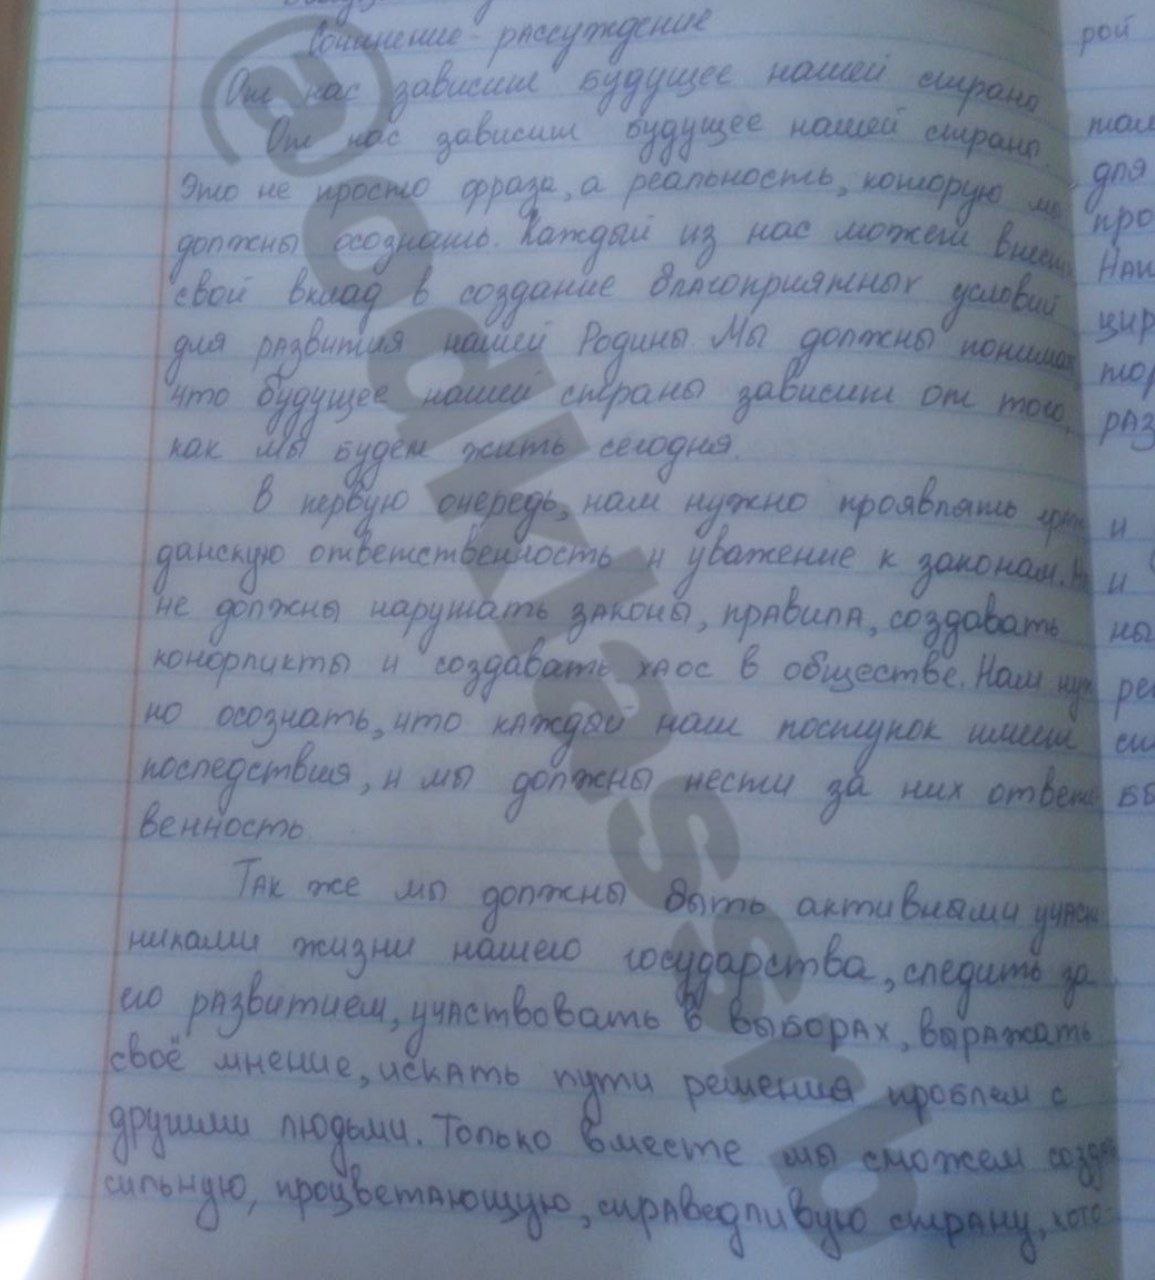 Сочинение - рассуждение
От нас зависит будущее нашей страна
От нас зависит будущее нашей страны.
Это не просто фраза, а реальность, которую мы
должны осознать. Каждый из нас может внести
свой вклад в создание благоприятных условий
для развития нашей Родины. Мы должны понимать
что будущее нашей страны зависит от того,
как мы будем жить сегодня.
В первую очередь, нам нужно проявлять
данскую ответственность и уважение к законам.
не должны нарушать законы, правила, создавать
конфликты и создавать хаос в обществе. Нам нуж
но осознать, что каждый наш поступок имеет
последствия, и мы должны нести за них ответст
венность
Так же мы должны быть активными участ
никами жизни нашего государства, следить за
его развитием, участвовать в выборах, выражать
своё мнение, искать пути решения проблем с
другими людьми. Только вместе мы сможем создать
сильную, процветающую, справедливую страну, кото-
рой
для
про
и
и
ны
@odklassrb